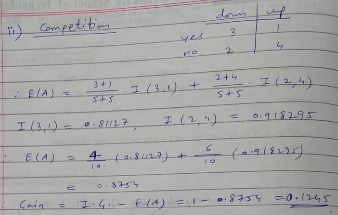 ii) Competition
down up
yes 3 1
no 2 4
∴ E(A) = 3+1/5+5 I (3,1) + 2+4/5+5 I (2,4)
I (3,1) = 0.81127, I (2,4) = 0.918295
∴ E(A) = 4/10 (0.81127) + 6/10 (0.918295)
= 0.8754
∴ Gain = I.G. - E(A) = 1 - 0.8754 = 0.1245